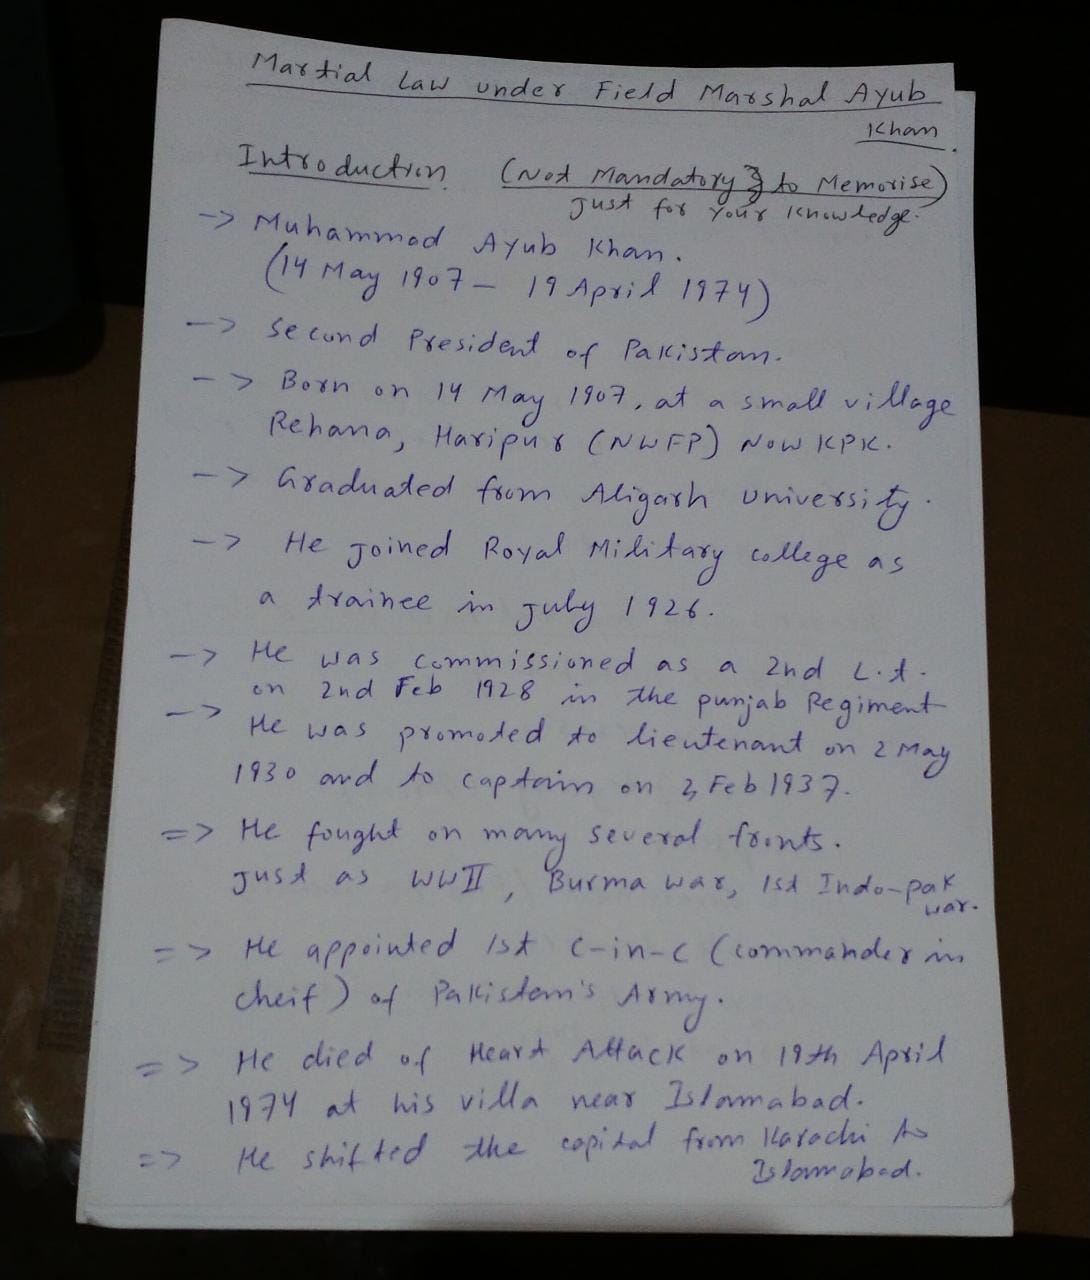 Martial Law under Field Marshal Ayub
Khan.
Introduction (Not Mandatory to Memorise)
Just for Your Knowledge.
-> Muhammad Ayub Khan.
(14 May 1907 - 19 April 1974)
-> Second President of Pakistan.
-> Born on 14 May 1907, at a small village
Rehana, Haripur (NWFP) Now KPK.
-> Graduated from Aligarh University.
-> He joined Royal Military college as
a trainee in july 1926.
-> He was commissioned as a 2nd L.t.
on 2nd Feb 1928 in the punjab Regiment
-> He was promoted to lieutenant on 2 May
1930 and to captain on 2, Feb 1937.
=> He fought on many several fronts.
just as WWII, Burma war, 1st Indo-pak
war.
=> He appointed 1st C-in-C (commander in
cheif) of Pakistan's Army.
=> He died of Heart Attack on 19th April
1974 at his villa near Islamabad.
=> He shifted the capital from Karachi to
Islamabad.